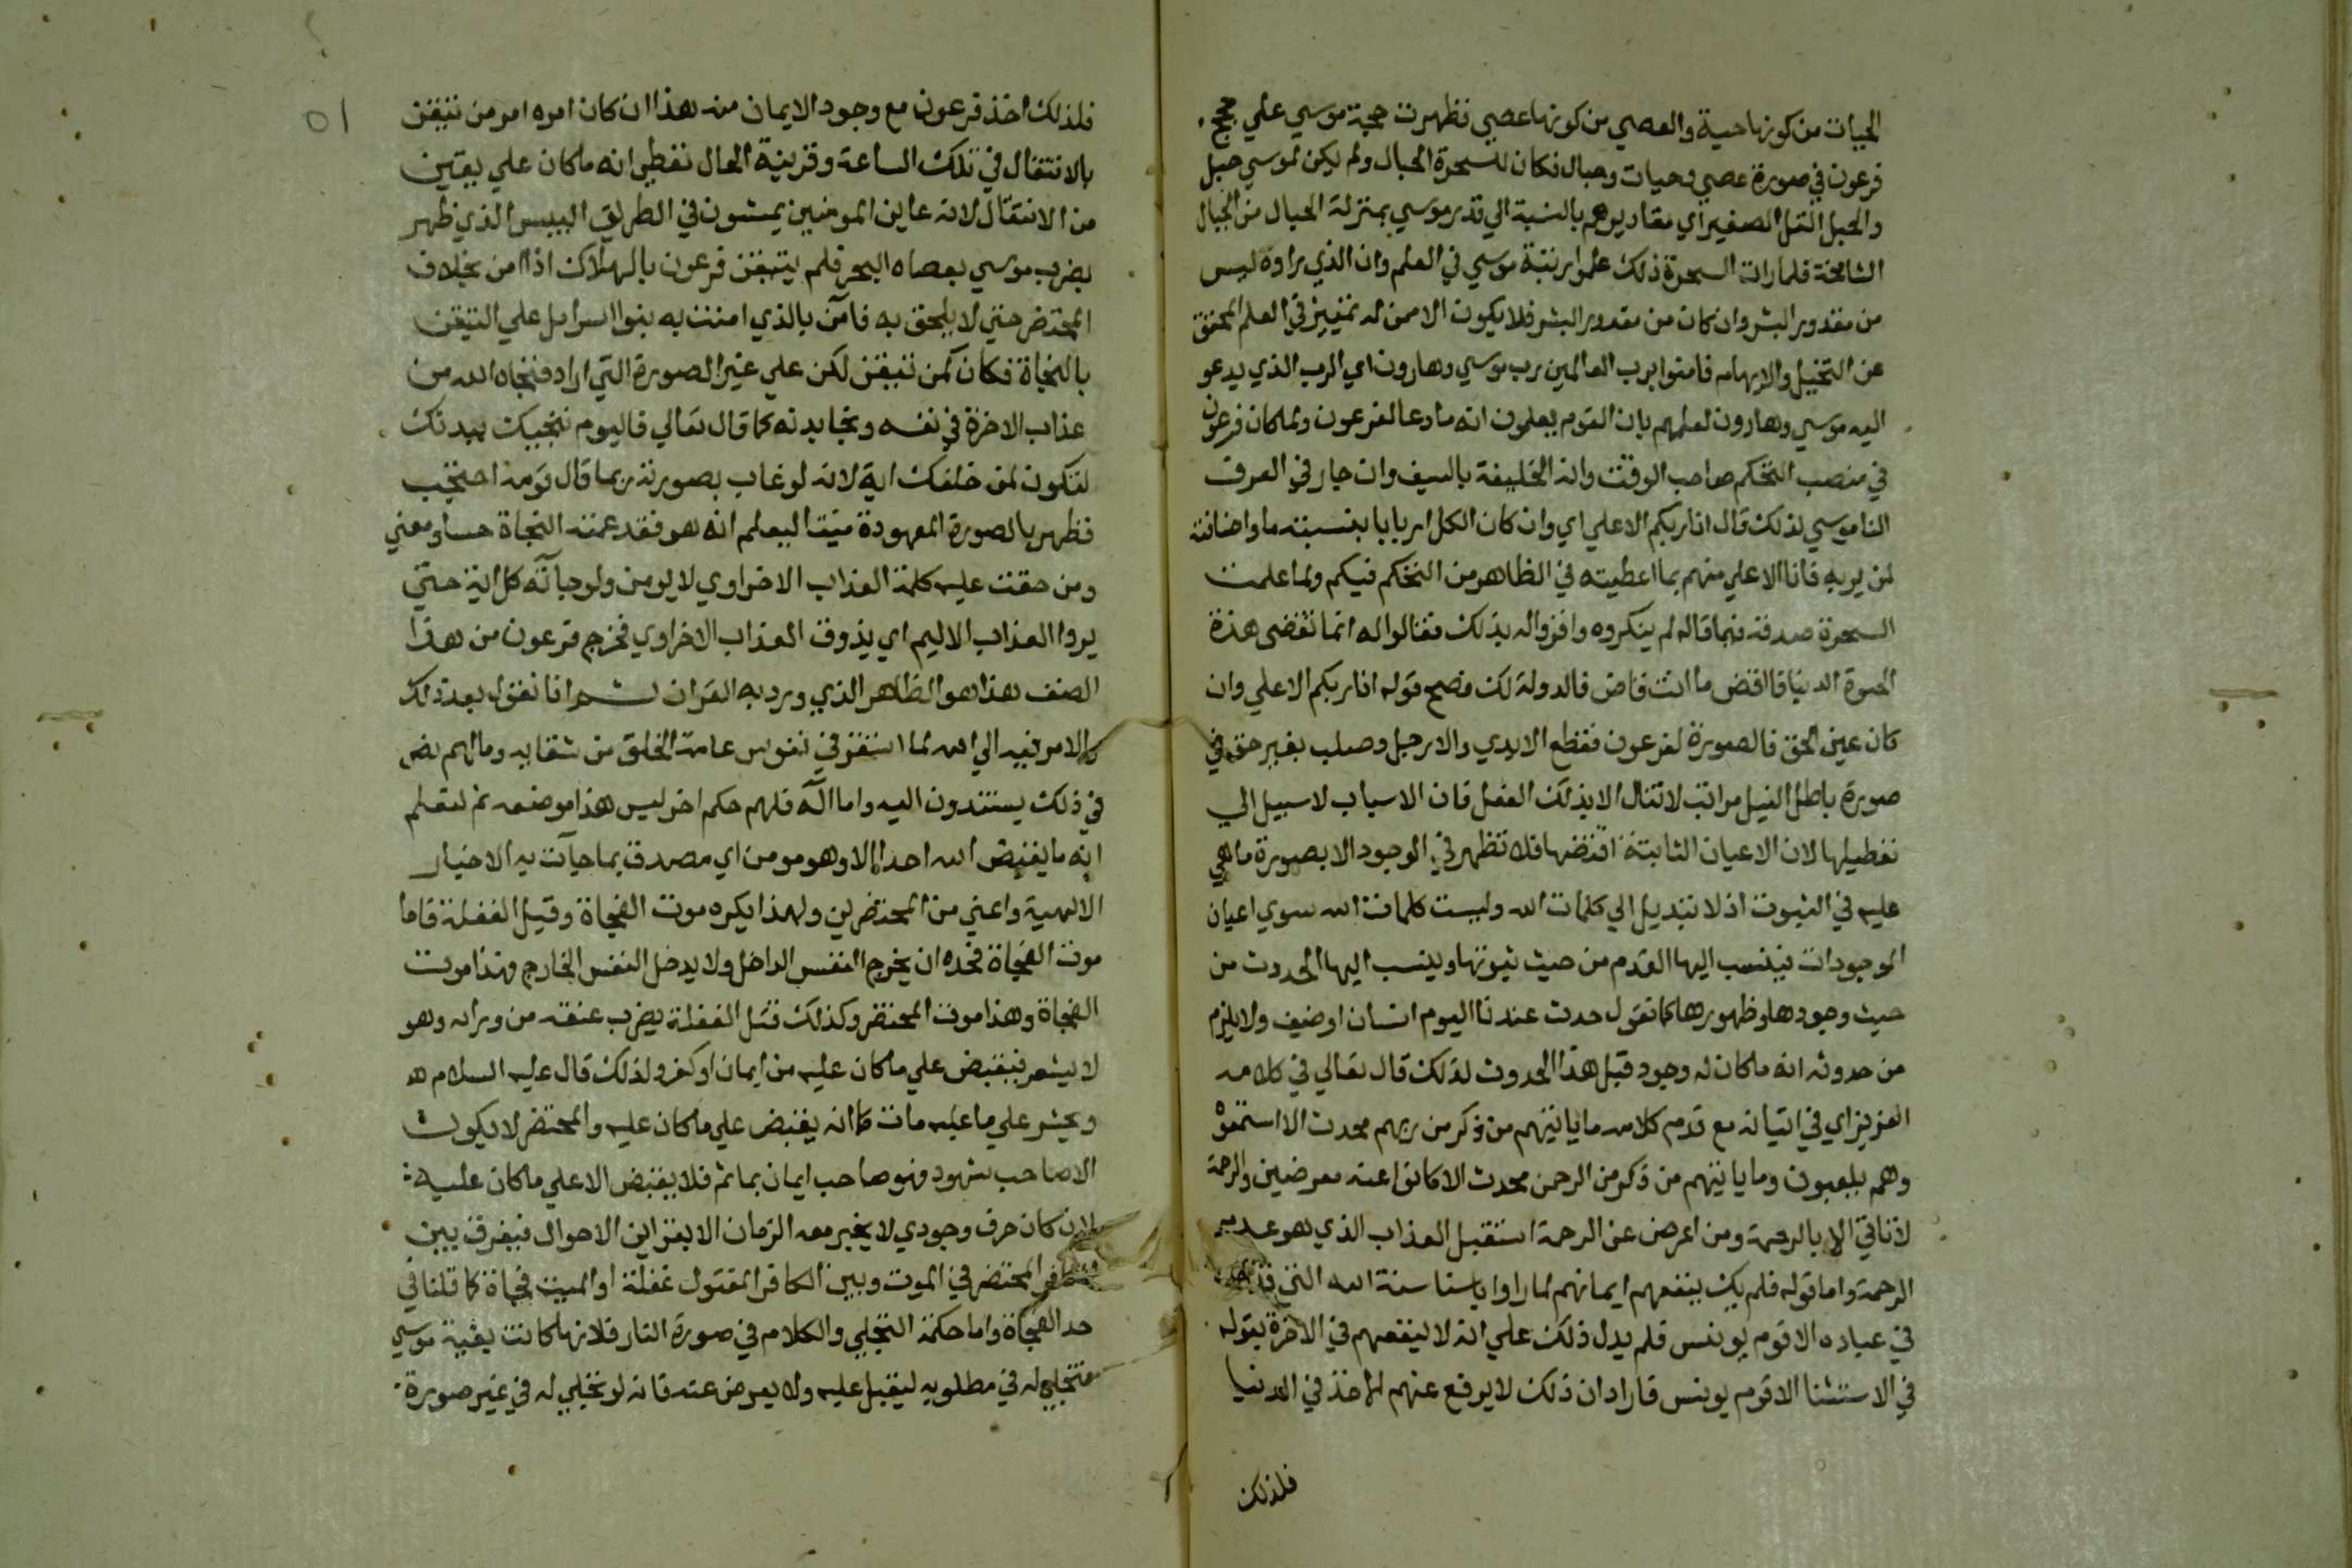 الحيات من كونها حية والعصي من كونها عصي فظهرت حجة موسي علي حجج
فرعون في صورة عصي وحيات وحبال فكان للسحرة الحبال ولم يكن لموسي حبل
والحبل التل الصغير اي مقاديرهم بالنسبة الي قدر موسي بمنزلة الحبال من الجبال
الشامخة فلما رات السحرة ذلك علموا رتبة موسي في العلم وان الذي راوه ليس
من مقدور البشر وان كان من مقدور البشر فلا يكون الا ممن له تمييز في العلم المحقق
عن التخيل والايهام فامنوا برب العالمين رب موسي وهارون اي الرب الذي يدعو
اليه موسي وهارون لعلمهم بان القوم يعلمون انه ما دعا لفرعون ولما كان فرعون
في منصب التحكم صاحب الوقت وانه الخليفة بالسيف وان جار في العرف
الناموسي لذلك قال انا ربكم الاعلي اي وان كان الكل اربابا بنسبته ما واضافته
لمن يربه فانا الاعلي منهم بما اعطيته في الظاهر من التحكم فيكم ولما علمت
السحرة صدقه فيما قاله لم ينكروه واقروا له بذلك فقالوا له انما تقضى هذه
الحيوة الدنيا فاقض ما انت قاض فالدولة لك فصح قوله انا ربكم الاعلي وان
كان عين الحق فالصورة لفرعون فقطع الايدي والارجل وصلب بغير حق في
صورة باطل لنيل مراتب لا تنال الا بذلك الفعل فان الاسباب لا سبيل الي
تعطيلها لان الاعيان الثابتة اقتضها فلا تظهر في الوجود الا بصورة ما هي
عليه في الثبوت اذ لا تبديل الي كلمات الله وليست كلمات الله سوي اعيان
الموجودات فينسب اليها القدم من حيث ثبوتها وينسب اليها الحدوث من
حيث وجودها وظهورها كما نقول حدث عندنا اليوم انسان او ضيف ولا يلزم
من حدوثه انه ما كان له وجود قبل هذا الحدوث لذلك قال تعالي في كلامه
العزيز اي في اتيانه مع قدم كلامه ما ياتيهم من ذكر من ربهم محدث الا استمعوه
وهم يلعبون وما ياتيهم من ذكر من الرحمن محدث الا كانوا عنه معرضين والرحمة
لا تاتي الا بالرحمة ومن اعرض عن الرحمة استقبل العذاب الذي هو عدم
الرحمة واما قوله فلم يك ينفعهم ايمانهم لما راوا باسنا سنة الله التي قد
في عباده الا قوم يونس فلم يدل ذلك علي انه لا ينفعهم في الاخرة بقوله
في الاستثنا الا قوم يونس فاراد ان ذلك لا يرفع عنهم الاخذ في الدنيا
فلذلك
فلذلك اخذ فرعون مع وجود الايمان منه هذا ان كان امره امر من تيقن
بالانتقال في تلك الساعة وقرينة الحال تعطي انه ما كان علي يقين
من الانتقال لانه عاين المومنين يمشون في الطريق اليبس الذي ظهر
بضرب موسي بعصاه البحر فلم يتيقن فرعون بالهلاك اذا امن بخلاف
المحتضر حتي لا يلحق به فآمن بالذي امنت به بنوا اسرايل علي التيقن
بالنجاة فكان كمن تيقن لكن علي غير الصورة التي اراد فنجاه الله من
عذاب الاخرة في نفسه ونجا بدنه كما قال تعالي فاليوم ننجيك ببدنك
لتكون لمن خلفك اية لانه لو غاب بصورته ربما قال قومه احتجب
فظهر بالصورة المعهودة ميتا ليعلم انه هو فقد عمته النجاة حسا ومعني
ومن حقت عليه كلمة العذاب الاخراوي لا يومن ولو جآته كل اية حتي
يروا العذاب الاليم اي يذوق العذاب الاخراوي فخرج فرعون من هذا
الصنف هذا هو الظاهر الذي ورد به القران ثم انا نقول بعد ذلك
والامر فيه الي الله لما استقر في نفوس عامة الخلق من شقايه وما لهم نص
في ذلك يستندون اليه واما آله فلهم حكم اخر ليس هذا موضعه ثم لتعلم
انه ما يقبض الله احدا الا وهو مومن اي مصدق بما جآت به الاخبار
الالهية واعني من المحتضرين ولهذا يكره موت الفجاة وقتل الغفلة فاما
موت الفجاة فحده ان يخرج النفس الداخل ولا يدخل النفس الخارج فهذا موت
الفجاة وهذا موت المحتضر وكذلك قتل الغفلة بضرب عنقه من ورائه وهو
لا يشعر فيقبض علي ما كان عليه من ايمان او كفر ولذلك قال عليه السلام
ويحشر علي ما عليه مات كما انه يقبض علي ما كان عليه والمحتضر لا يكون
الا صاحب شهود فهو صاحب ايمان بما ثم فلا يقبض الا علي ما كان عليه
لان كان حرف وجودي لا يخبر معه الزمان الا بقراين الاحوال فيفرق بين
المحتضر في الموت وبين الكافر المقتول غفلة او الميت فجاة كما قلنا في
حد الفجاة واما حكمة التجلي والكلام في صورة النار فلانها كانت بغية موسي
فتجلي له في مطلوبه ليقبل عليه ولا يعرض عنه فانه لو تجلي له في غير صورة
٥١